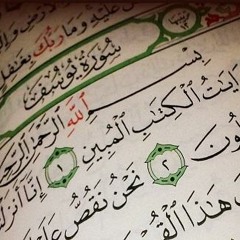 عَلَيْهِ وَمَا رَبُّكَ بِغَٰفِلٍ
سُورَةُ يُوسُفَ
بِسْمِ اللَّهِ الرَّحْمَٰنِ الرَّحِيمِ
ءَايَٰتُ الْكِتَٰبِ الْمُبِينِ ١ إِنَّا
٢ نَحْنُ نَقُصُّ
هَٰذَا